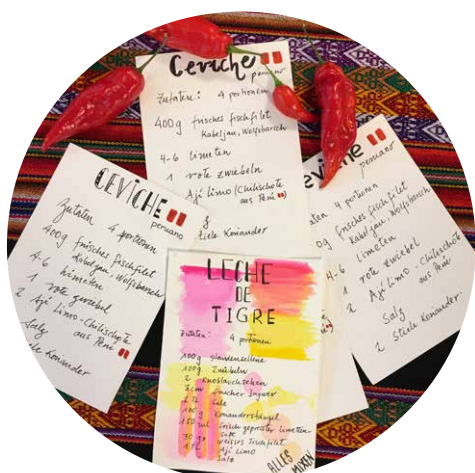 Ceviche
peruano
Zutaten: 4 portionen
400g frisches fischfilet
Kabeljau, Wolfsbarsch
4-6 limeten
1 rote zwiebeln
Ají Limo (Chilischote
aus Perú)
Stiele Koriander
CEVICHE
peruano
Zutaten 4 portionen
400g frisches fischfilet
Kabeljau, Wolfsbarsch
4-6 Limeten
1 rote zwiebel
2 Ají Limo-Chilischote
aus Perú
Salz
Koriander
peruano
4 portionen
frisches fischfilet
Kabeljau, Wolfsbarsch
4-6 limeten
1 rote zwiebel
2 Ají Limo-Chilischote
aus Perú
Salz
2 Stiele Koriander
LECHE
DE
TIGRE
Zutaten: 4 portionen
100g Staudensellerie
100g Zwiebeln
2 Knoblauchzehen
frischer Ingwer
Salz
Korianderstängel
150 ml frisch gepresster limeten-
saft
weisses Fischfilet
Ají Limo
Salz
ALLES
MIXEN